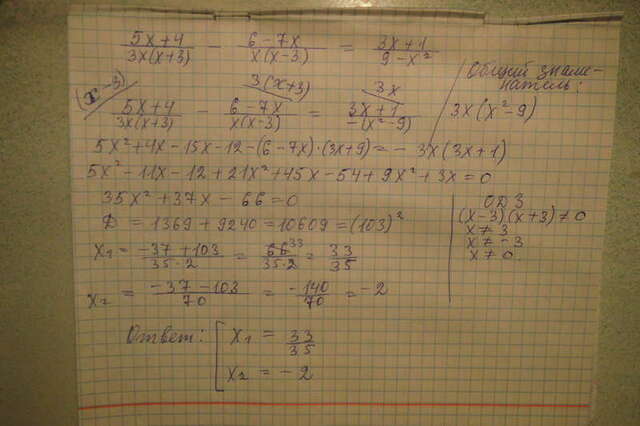 (5x+4)/(3x(x+3)) - (6-7x)/(x(x-3)) = (3x+1)/(9-x²)
Общий знаме-
натель:
3x(x²-9)
(x-3) 3(x+3) 3x
(5x+4)/(3x(x+3)) - (6-7x)/(x(x-3)) = (3x+1)/(-(x²-9))
5x²+4x-15x-12-(6-7x)·(3x+9)=-3x(3x+1)
5x²-11x-12+21x²+45x-54+9x²+3x=0
35x²+37x-66=0
D = 1369+9240=10609=(103)²
x₁ = (-37+103)/(35·2) = 66³³/(35·2) = 33/35
x₂ = (-37-103)/70 = -140/70 = -2
ОДЗ
(x-3)(x+3)≠0
x≠3
x≠-3
x≠0
Ответ: [ x₁ = 33/35
x₂ = -2